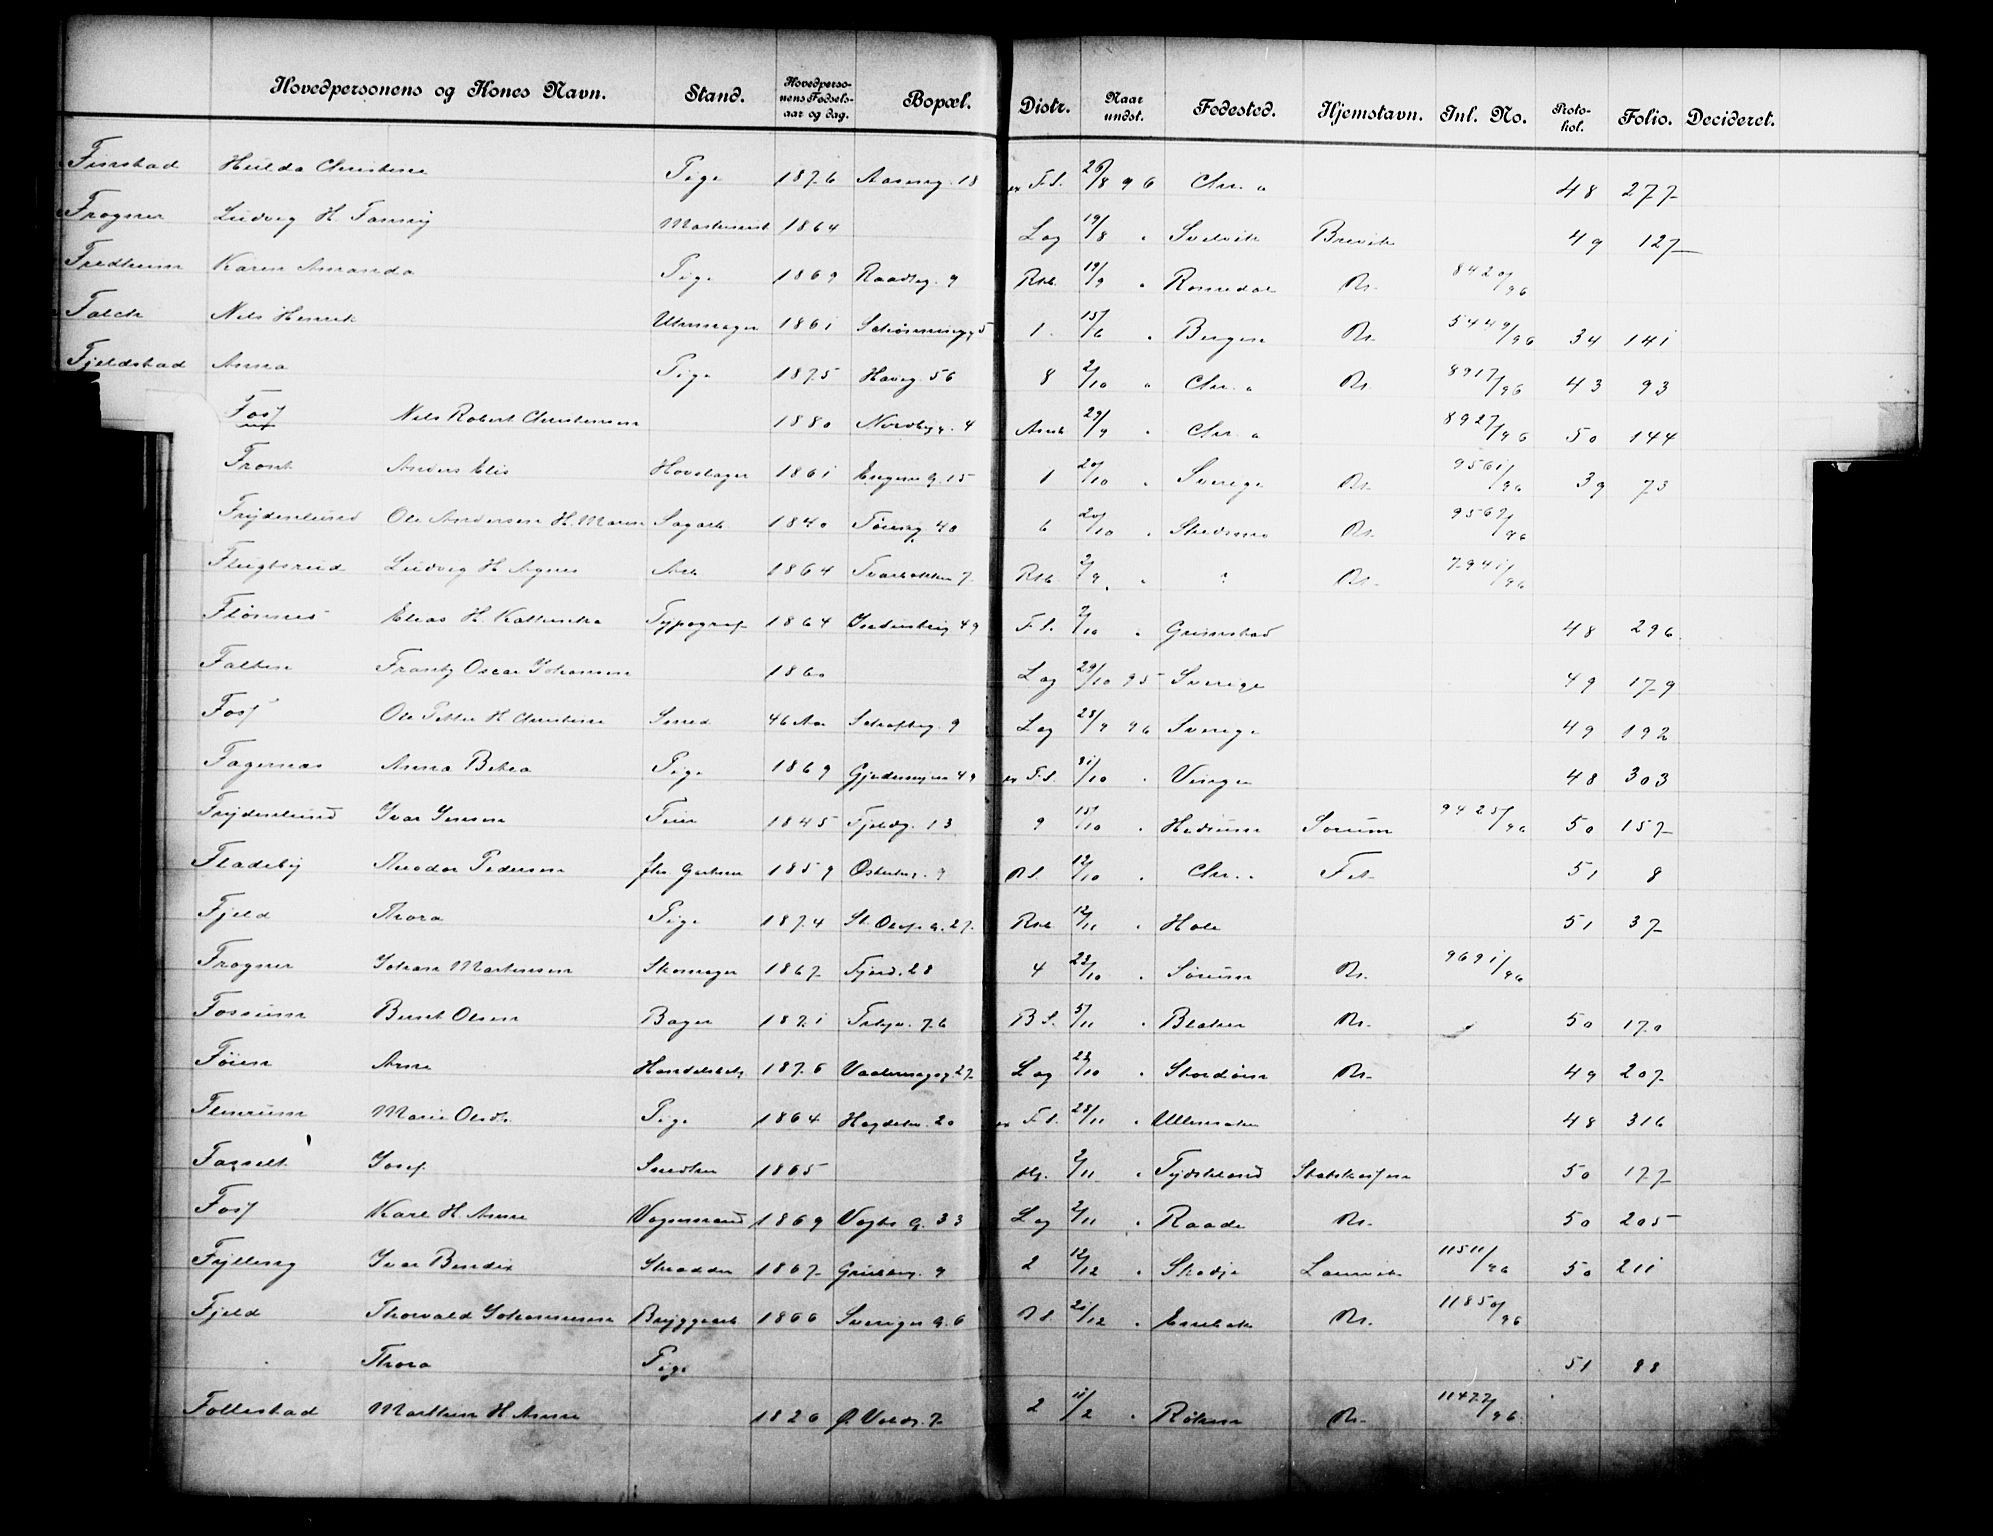 Hovedpersonens og Kones Navn. Stand. Hovedpersonens Fødselsaar og dag. Bopæl. Distr. Naar undst. Fødested. Hjemstavn. Inl. No. Protokol. Folio. Decideret.
Finstad Hulda Christine Pige 1876 Aasensg. 18 F.S. 26/8 96 Chr.a 48 277
Frogner Ludvig H. Fanny 1864 Lag 19/8 " Svelvik Brevik 49 127
Fredheim Karen Amanda Pige 1869 Raadhsg. 9 Rsk 19/9 " Romedal Rs. 8420/96
Falck Nils Henrik Uhrmager 1861 Schønningsg. 5 1. 15/6 " Bergen Rs. 5449/96 34 141
Fjeldstad Anna Pige 1875 Haveg. 56 8 2/10 " Chr.a Rs. 8917/96 43 93
Foss Nils Robert Christensen 1880 Nordbyg. 4 29/9 " Chr.a 8927/96 50 144
Fronk Anders Elis Hovslager 1861 Engens G. 15 1 20/10 " Sverige Rs. 9561/96 39 73
Frydenlund Ole Andersen H. Maren Sagarb. 1840 Tøieng. 40 6 20/10 " Skedsmo Rs. 9569/96
Flugtsrud Ludvig H. Agnes Arb. 1864 Tværbakken 7 Rsk 2/9 " ? Rs. 7941/96
Flønnes Elias H. Kathinka Typograf 1864 49 F.S. 2/10 " Grimstad 48 296
Falken Frantz Oscar Johansen 1860 Lag 29/10 95 Sverige 49 179
Foss Ole Petter H. Christine Smed 46 Aar Schoftsg. 9 Lag 28/9 96 Sverige 49 192
Fagernæs Anna Betea Pige 1869 Gjedemyren 49 F.S. 31/10 " Vinger 48 303
Frydenlund Ivar Jensen Feier 1845 Fjeldg. 13 9 15/10 " Høland Sørum 9425/96 50 157
Fladeby Theodor Pedersen 1859 Osterhsg. 9 Rs. 12/10 " Chr.a Fet 51 8
Fjeld Thora Pige 1874 St. Olafs G. 27 Rsk 12/11 " Hole 51 37
Frogner Johan Martinsen Skomager 1867 Fjerd. 28 4 22/10 " Sørum Rs. 9691/96
Fossum Bernt Olsen Bager 1871 76 B.S. 5/11 " Blaker Rs. 50 170
Føien Arne Handelsbetj. 1876 Vaalerengag 27 Lag 22/10 " Stordøen Rs. 49 207
Flenrum Marie Olsdtr. Pige 1864 Hagdehn. 20 F.S. 28/11 " Ullensaker 48 316
Fasselt Josef Snedker 1865 2/11 " Tydskland Statskassen 50 177
Foss Karl H. Anna Vognmand 1869 Vogts G. 33 Lag 2/11 " Raade Rs. 50 205
Fylling Ivar Bendix Skrædder 1867 Grünerg. 9 2 12/12 " Skodje Laurvik 11511/96 50 211
Fjeld Thorvald Johannesen Bryggearb. 1866 Sveriges G. 6 Rs. 21/12 " Enebak Rs. 11850/96
" Thora Pige 51 88
Follestad Mathea H. Anna 1826 Ø. Voldg. 7 2 11/2 " Røken Rs. 11477/96